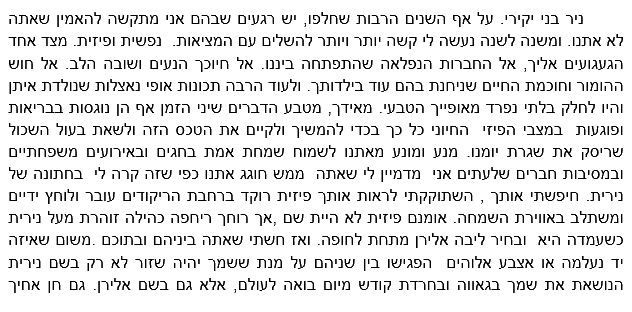 ניר בני יקירי. על אף השנים הרבות שחלפו, יש רגעים שבהם אני מתקשה להאמין שאתה
לא אתנו. ומשנה לשנה נעשה לי קשה יותר ויותר להשלים עם המציאות.  נפשית ופיזית. מצד אחד
הגעגועים אליך, אל החברות הנפלאה שהתפתחה ביננו. אל חיוכך הנעים ושובה הלב. אל חוש
ההומור וחוכמת החיים שניחנת בהם עוד בילדותך. ולעוד הרבה תכונות אופי נאצלות שנולדת איתן
והיו לחלק בלתי נפרד מאופייך הטבעי. מאידך, מטבע הדברים שיני הזמן אף הן נוגסות בבריאות
ופוגעות  במצבי הפיזי  החיוני כל כך בכדי להמשיך ולקיים את הטכס הזה ולשאת בעול השכול
שריסק את שגרת יומנו. מנע ומונע מאתנו לשמוח שמחת אמת בחגים ובאירועים משפחתיים
ובמסיבות חברים שלעתים אני  מדמיין לי שאתה  ממש חוגג אתנו כפי שזה קרה לי  בחתונה של
נירית. חיפשתי אותך , השתוקקתי לראות אותך פיזית רוקד ברחבת הריקודים עובר ולוחץ ידיים
ומשתלב באווירת השמחה. אומנם פיזית לא היית שם ,אך רוחך ריחפה כהילה זוהרת מעל נירית
כשעמדה היא  ובחיר ליבה אלירן מתחת לחופה. ואז חשתי שאתה ביניהם ובתוכם .משום שאיזה
יד נעלמה או אצבע אלוהים  הפגישו בין שניהם על מנת ששמך יהיה שזור לא רק בשם נירית
הנושאת את שמך בגאווה ובחרדת קודש מיום בואה לעולם, אלא גם בשם אלירן. גם חן אחיך